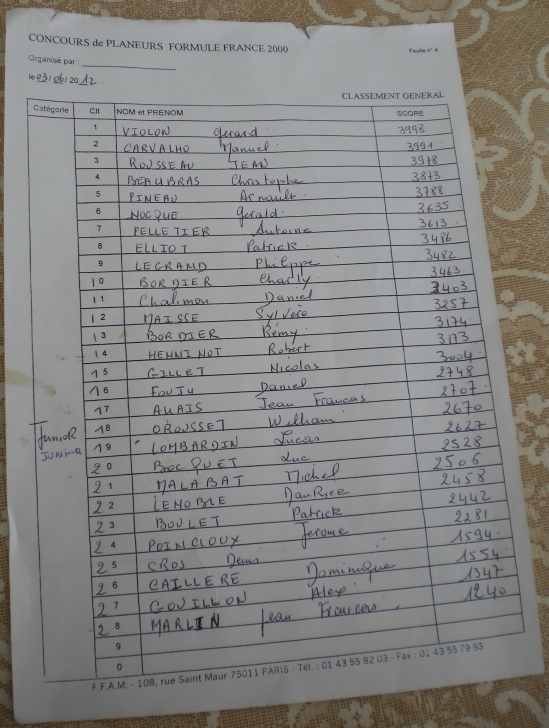 CONCOURS de PLANEURS FORMULE FRANCE 2000
Feuille n° 4
Organisé par :
le 03/06/2012
CLASSEMENT GENERAL
Catégorie Clt NOM et PRENOM SCORE
1 VIOLON Gerard 3998
2 CARVALHO Manuel 3991
3 ROUSSEAU JEAN 3978
4 BEAUBRAS Christophe 3873
5 PINEAU Arnault 3788
6 NOCQUE Gerald 3635
7 PELLETIER Antoine 3613
8 ELLIOT Patrick 3486
9 LEGRAND Philippe 3482
10 BORDIER Charly 3463
11 Chalimon Daniel 3403
12 MAISSE Sylvère 3257
13 BORDIER Rémy 3174
14 HENNINOT Robert 3173
15 GILLET Nicolas 3004
16 FOUTU Daniel 2748
17 AUAIS Jean Francois 2707
Junior 18 DROUSSET William 2670
JUNIOR 19 LOMBARDIN Lucas 2627
20 BOCQUET Luc 2528
21 MALABAT Michel 2506
22 LENOBLE Maurice 2458
23 BOULET Patrick 2442
24 POINCLOUX Jerome 2281
25 CROS Denis 1594
26 CAILLERE Dominique 1554
27 GOUILLON Alex 1347
28 MARLIN Jean Francois 1240
9
0
F.F.A.M. - 108, rue Saint Maur 75011 PARIS - Tél. : 01 43 55 82 03 - Fax : 01 43 55 79 93